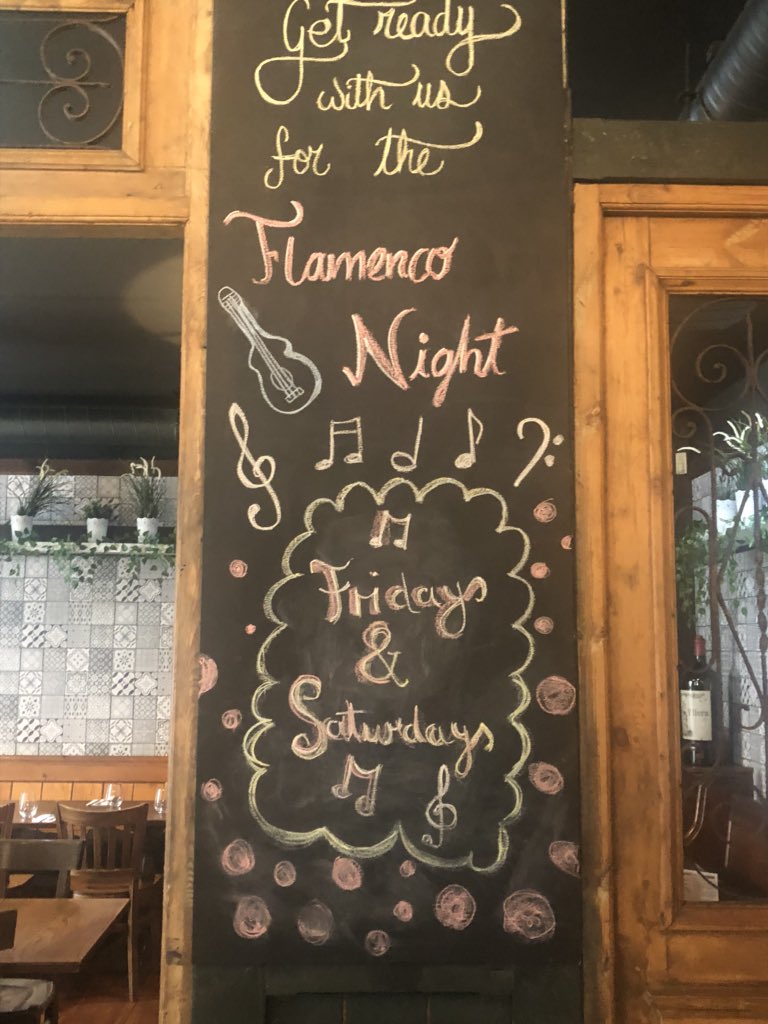 Get ready
with us
for the
Flamenco
Night
Fridays
&
Saturdays